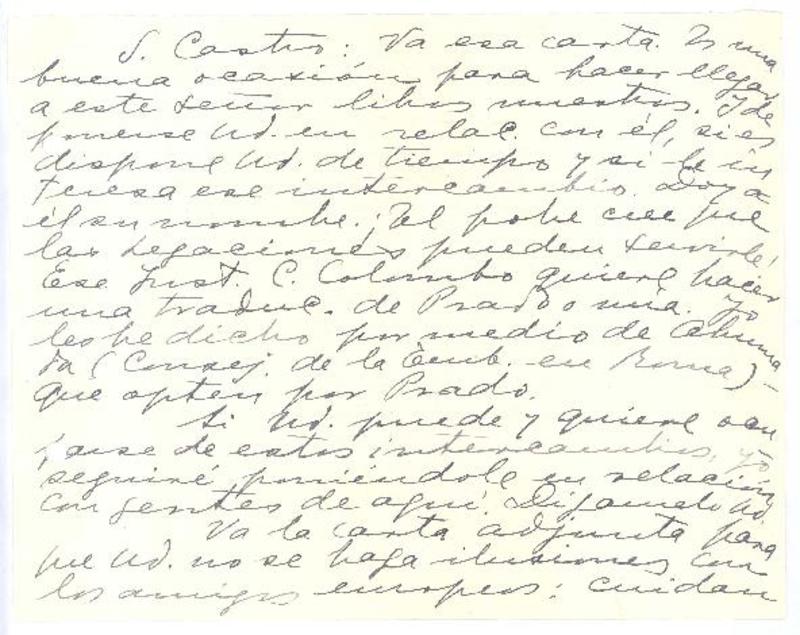 S. Castro: Va esa carta. Es una
buena ocasión para hacer llegar
a este señor libros nuestros. Y de
ponerse Ud. en relac. con él, si es
dispone Ud. de tiempo y si le in
teresa ese intercambio. Doy a
él su nombre. ¡El pobre cree que
las Legaciones pueden servirle!
Ese Inst. C. Colombo quiere hacer
una traduc. de Prado o mía. Yo
les he dicho por medio de Ahuma-
da (Consej. de la Emb. en Roma)
que opten por Prado.
Si Ud. puede y quiere ocu
parse de estos intercambios, yo
seguiré poniéndole en relación
con gentes de aquí. Dígamelo Ud.
Va la carta adjunta para
que Ud. no se haga ilusiones con
los amigos europeos: cuidan